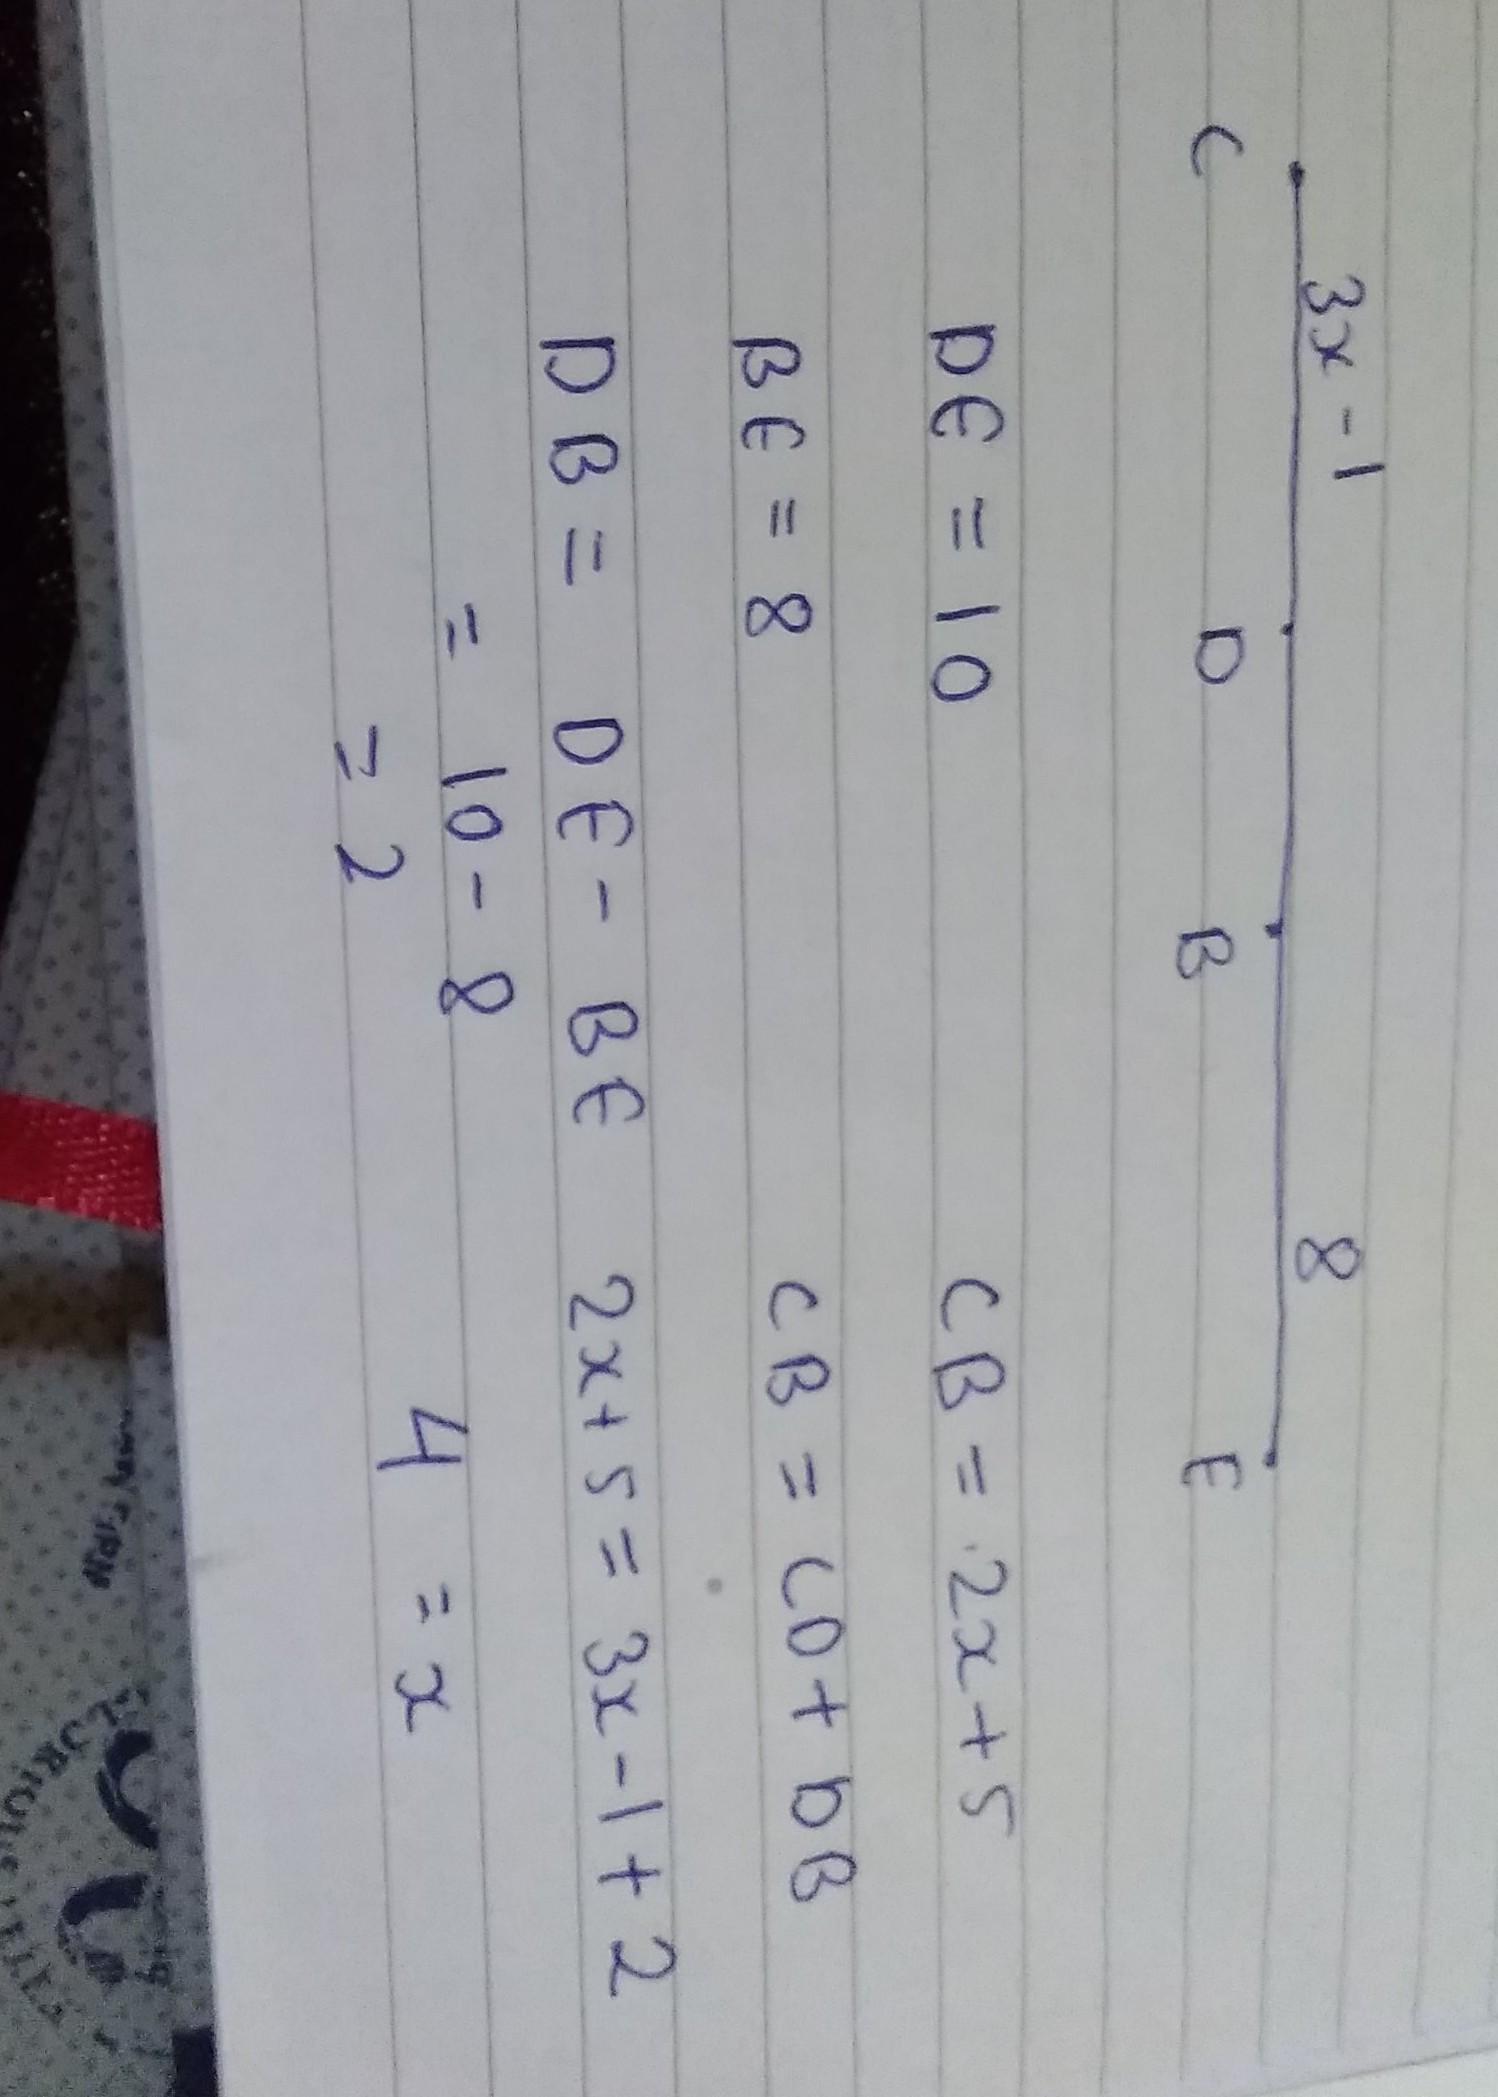 3x - 1 8
C D B E
DE = 10 CB = 2x + 5
BE = 8 CB = CD + DB
DB = DE - BE 2x + 5 = 3x - 1 + 2
= 10 - 8 4 = x
= 2